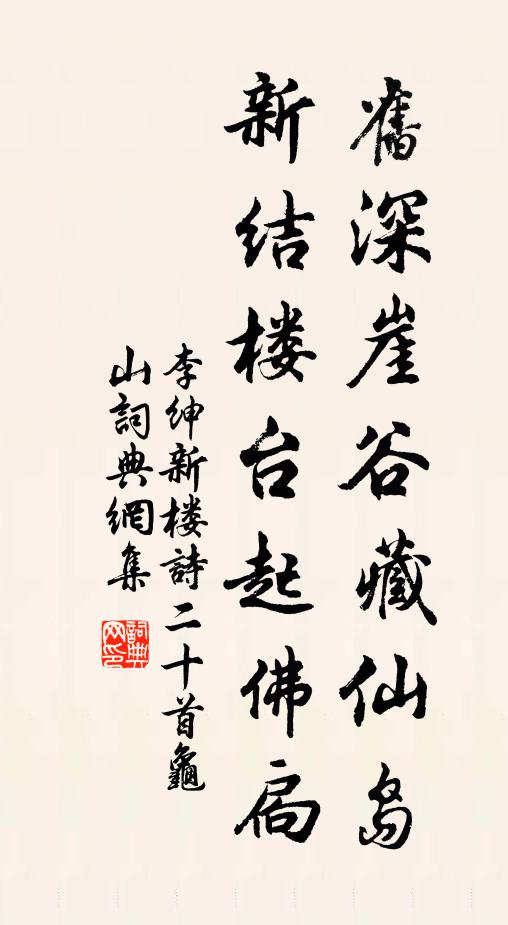 舊深崖谷藏仙島
新结楼台起佛扃
李绅新楼詩二十首龜
山詞典網集
詞典
网印